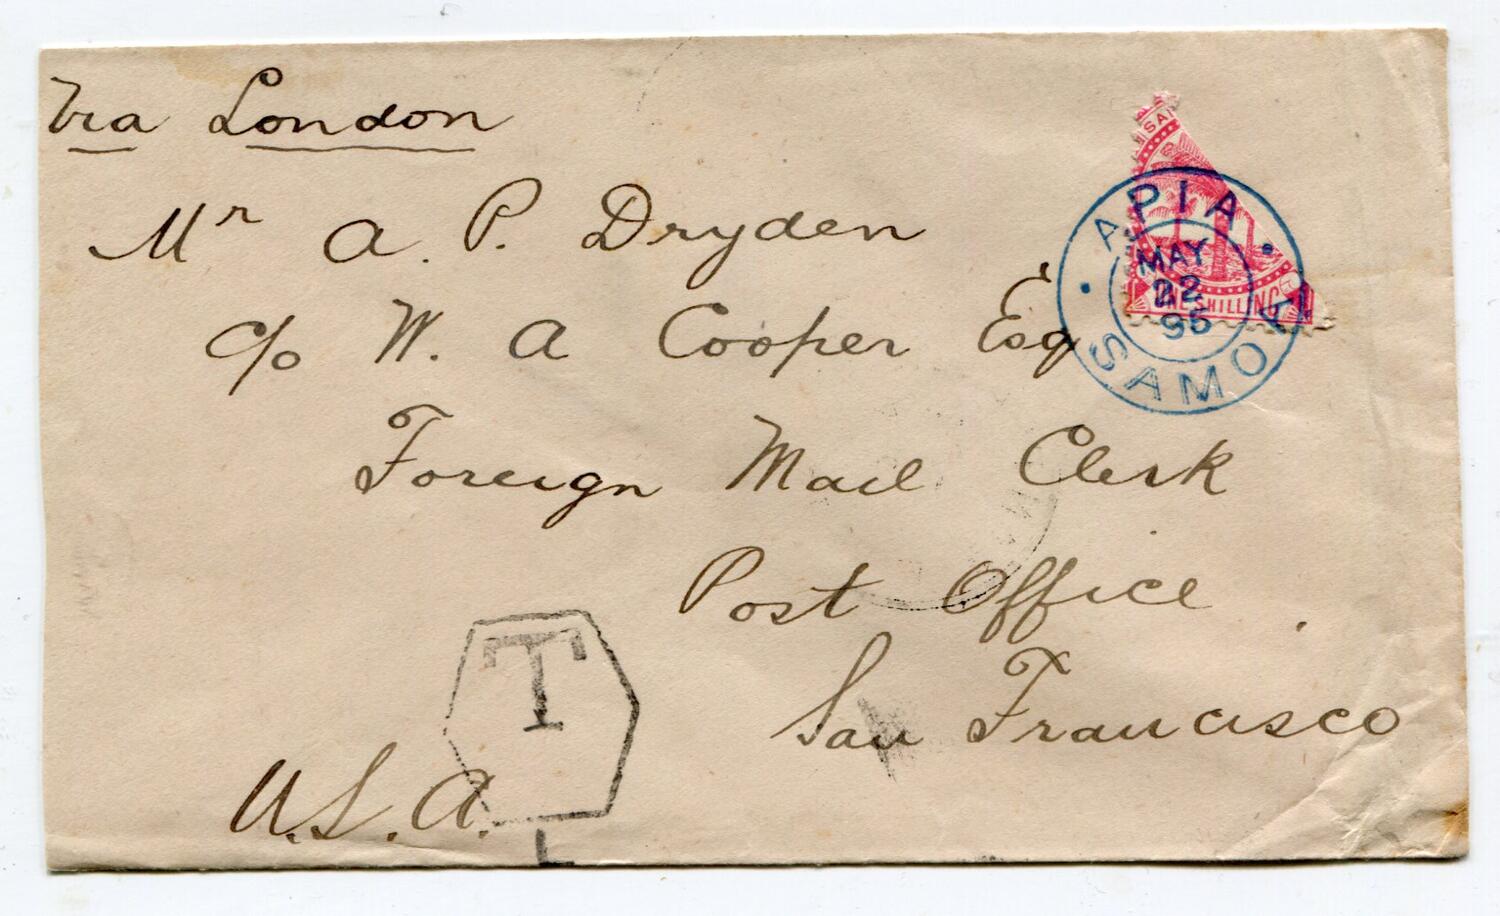 Via London
SA
APIA
MAY
22
95
SAMOA
ONE SHILLING
Mr A. P. Dryden
c/o W. A Cooper Esq
Foreign Mail Clerk
Post Office
San Francisco
U.S.A.
T
L